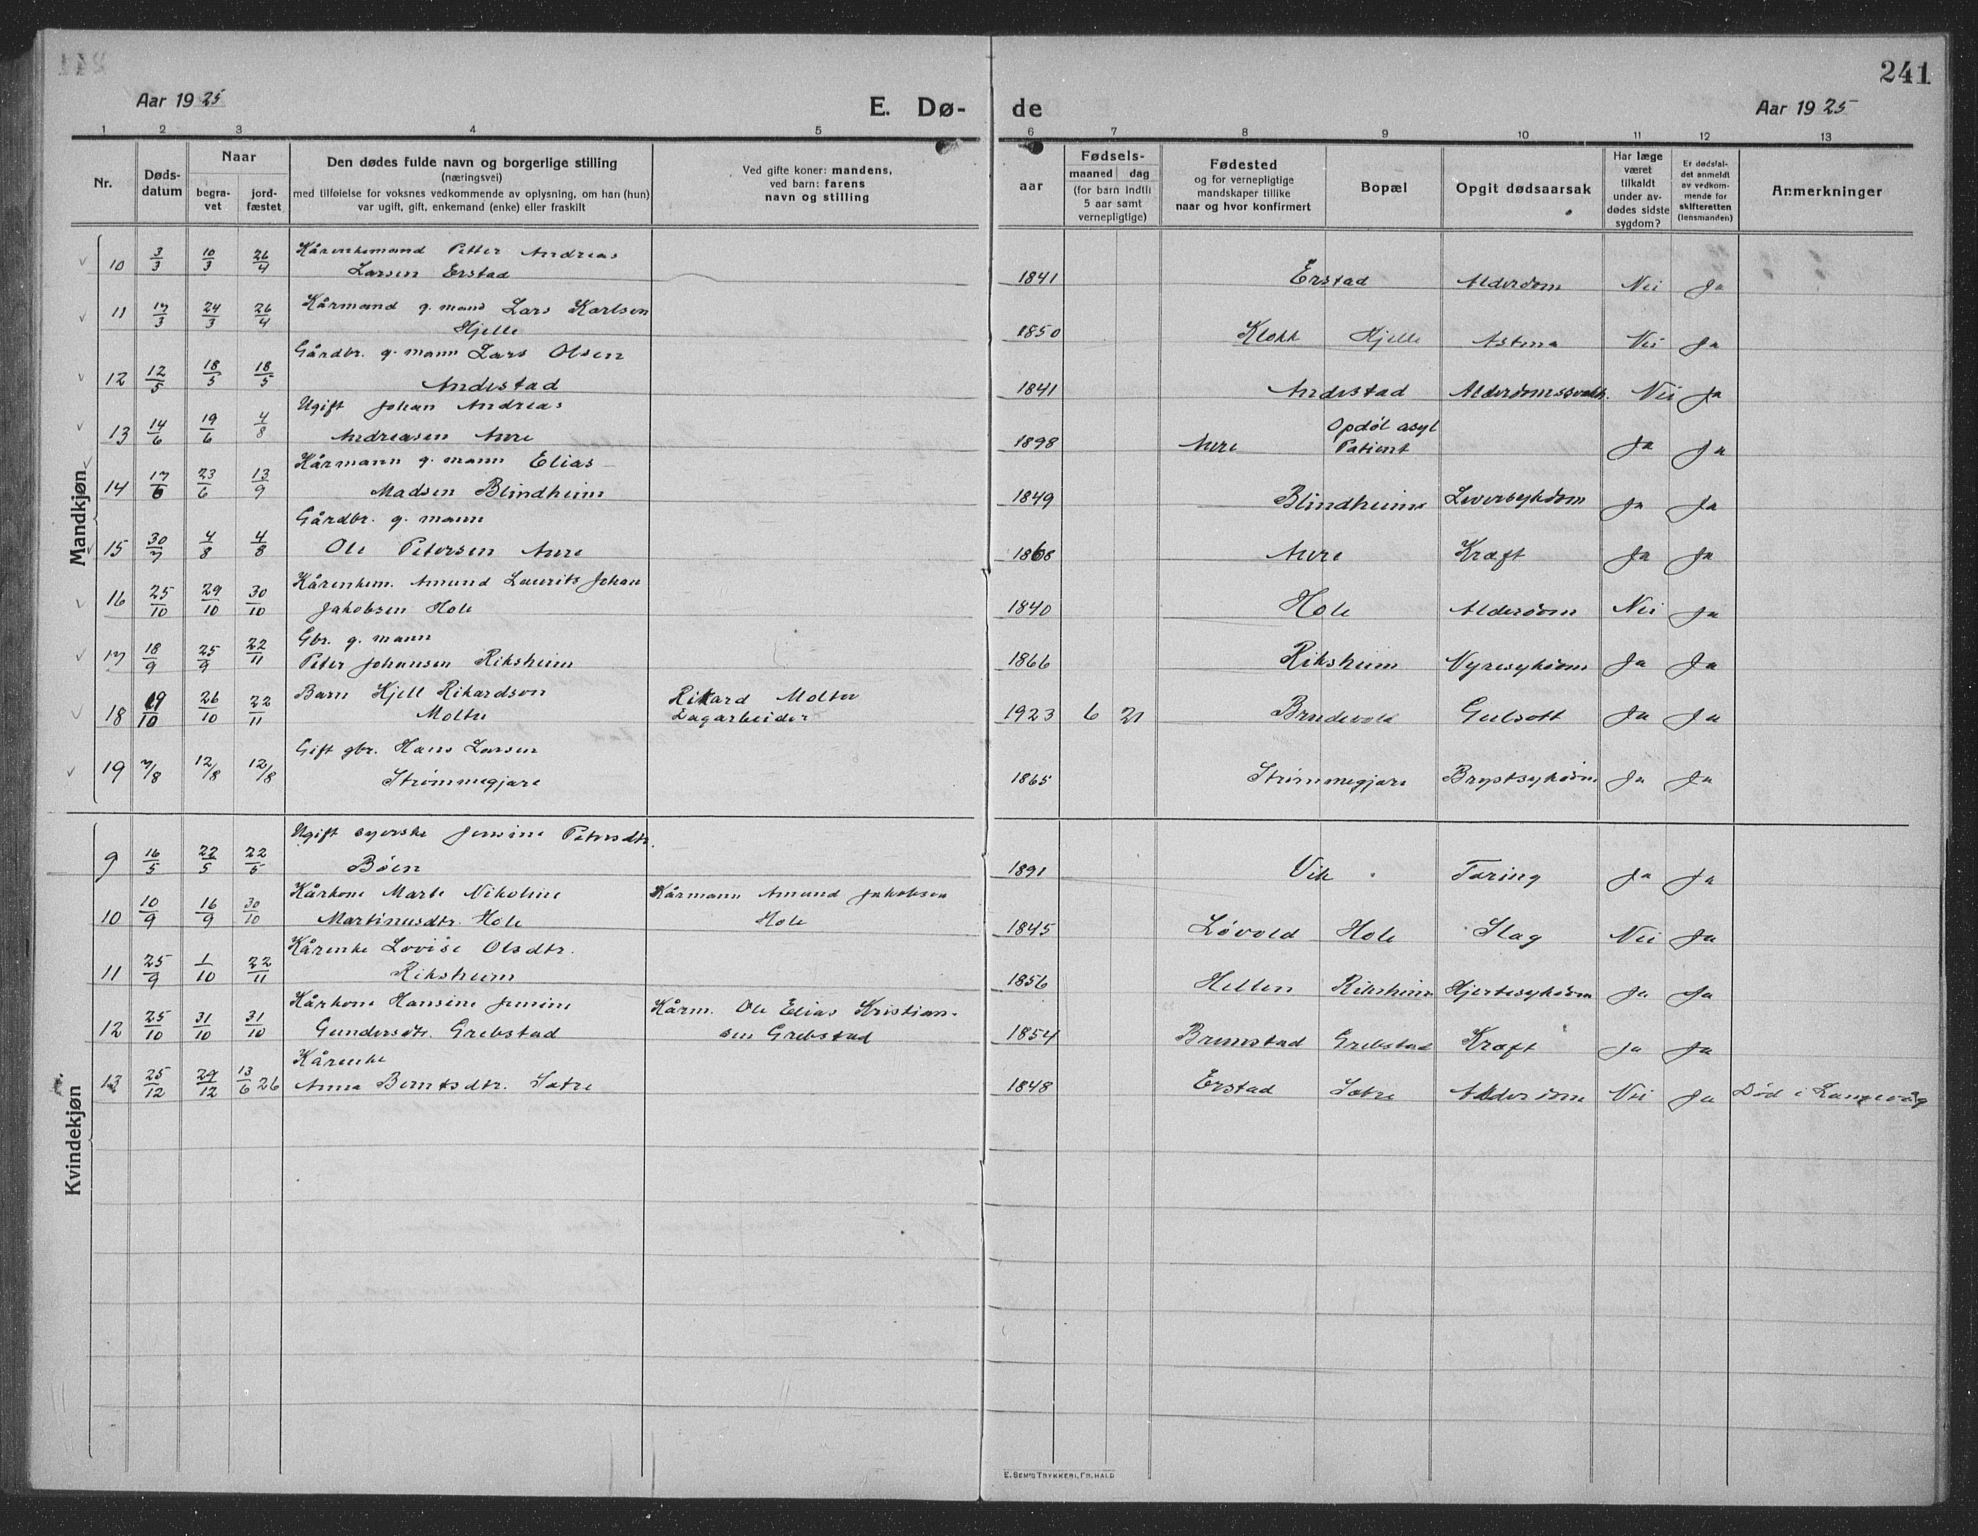 241
Aar 1925
E. Dø-
de
Aar 1925
1 2 3 4 5 6 7 8 9 10 11 12 13
Nr.
Døds-
datum
Naar
begra-
vet
jord-
fæstet
Den dødes fulde navn og borgerlige stilling
(næringsvei)
med tilføielse for voksnes vedkommende av oplysning, om han (hun)
var ugift, gift, enkemand (enke) eller fraskilt
Ved gifte koner: mandens,
ved barn: farens
navn og stilling
aar
Fødsels-
maaned dag
(for barn indtil
5 aar samt
vernepligtige)
Fødested
og for vernepligtige
mandskaper tillike
naar og hvor konfirmert
Bopæl
Opgit dødsaarsak
Har læge
været
tilkaldt
under av-
dødes sidste
sygdom?
Er dødsfal-
det anmeldt
av vedkom-
mende for
skifteretten
(lensmanden)
Anmerkninger
Mandkjøn
10 3/3 10/3 26/4 Kårenkemand Petter Andreas
Larsen Erstad 1841 Erstad Alderdom Nei Ja
11 17/3 24/3 26/4 Kårmand g. mand Lars Karlsen
Hjelle 1850 Klokk Hjelle Astma Nei Ja
12 12/5 18/5 18/5 Gårdbr. g. mann Lars Olsen
Andestad 1841 Andestad Nei Ja
13 14/6 19/6 4/8 Ugift Johan Andreas
Andreasen Aure 1898 Aure Opdøl asyl
Patient Ja Ja
14 17/6 23/6 13/9 Kårmann g. mann Elias
Madsen Blindheim 1849 Blindheim Leversykdom Ja Ja
15 30/7 4/8 4/8 Gårdbr. g. mann
Ole Petersen Aure 1868 Aure Kræft Ja Ja
16 25/10 29/10 30/10 Kårenkem. Amund Laurits Johan
Jakobsen Hole 1840 Hole Alderdom Nei Ja
17 18/9 25/9 22/11 Gbr. g. mann
Peter Johansen Riksheim 1866 Riksheim Nyresykdom Ja Ja
18 19/10 26/10 22/11 Barn Kjell Rikardson
Moltu Rikard Moltu
Dagarbeider 1923 6 21 Brudevold Gulsott Ja Ja
19 7/8 12/8 12/8 Gift gbr. Hans Larsen
Strømmegjære 1865 Strømmegjære Brystsykdom Ja Ja
Kvindekjøn
9 16/5 22/5 22/5 Ugift syerske Jensine Petersdtr.
Bøen 1891 Vik Tæring Ja Ja
10 10/9 16/9 30/10 Kårkone Marte Nikoline
Martinusdtr. Hole Kårmann Amund Jakobsen
Hole 1845 Løvold Hole Slag Nei Ja
11 25/9 1/10 22/11 Kårenke Lovise Olsdtr.
Riksheim 1856 Hellen Riksheim Hjertesykdom Ja Ja
12 25/10 31/10 31/10 Kårkone Hansine Jensine
Gundersdtr. Grebstad Kårm. Ole Elias Kristian-
sen Grebstad 1854 Brunstad Grebstad Kræft Ja Ja
13 25/12 29/12 13/6 26 Kårenke
Anna Berntsdtr. Sætre 1848 Erstad Sætre Alderdom Nei Ja Død i Langevåg
E. SEM'S TRYKKERI, FR.HALD